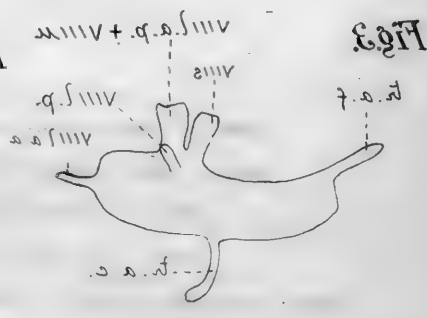 Fig.3.
VIII l.a.p. + VIII u
VIII s
tr. a. f
VIII l.p.
VIII l a a
tr. a c.